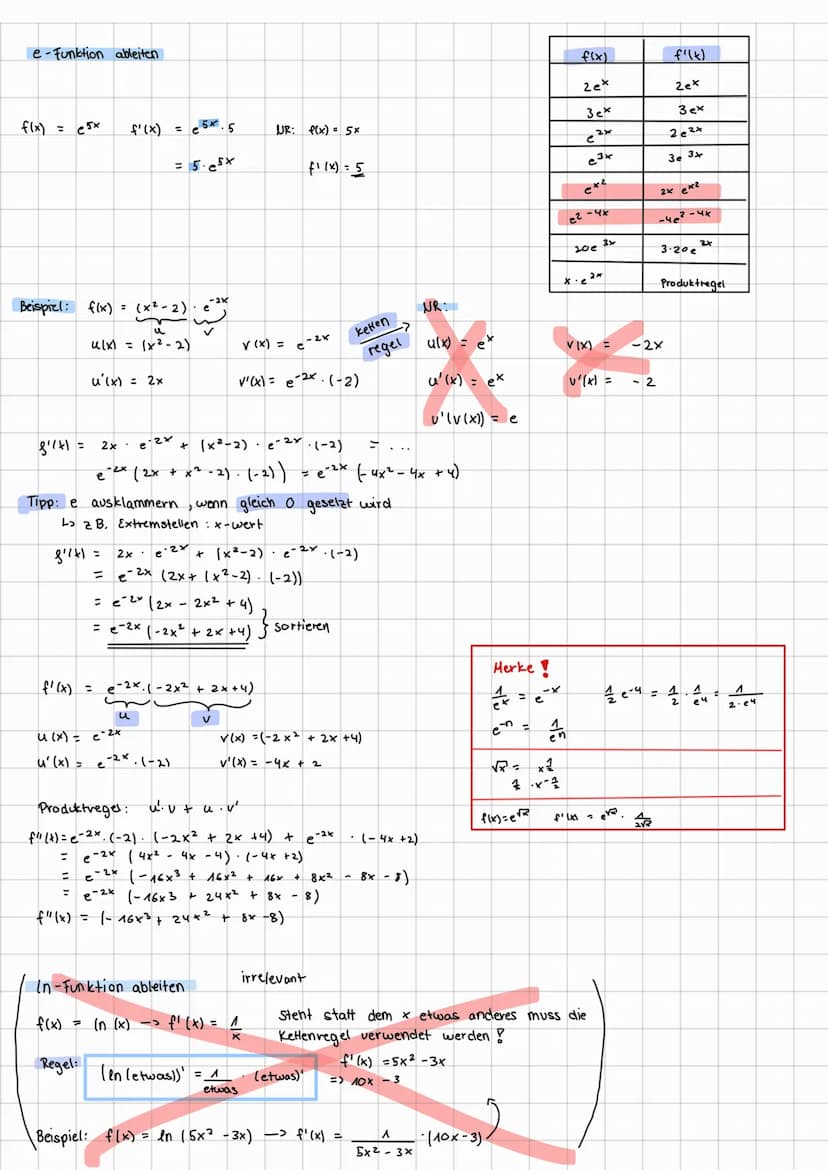 e-Funktion ableiten
f(x) = e^5x f'(x) = e^5x · 5 NR: f(x) = 5x
= 5 · e^5x f'(x) = 5
f(x) f'(x)
2e^x 2e^x
3e^x 3e^x
e^2x 2e^2x
e^3x 3e^3x
e^x² 2x e^x²
e^2-4x -4e^2-4x
20e^3x 3·20e^3x
x·e^2x Produktregel
Beispiel: f(x) = (x²-2) · e^-2x
u v
u(x) = (x²-2) v(x) = e^-2x
u'(x) = 2x v'(x) = e^-2x · (-2)
Ketten
regel
NR:
u(x) = e^x v(x) = -2x
u'(x) = e^x v'(x) = -2
v'(v(x)) = e
f'(x) = 2x · e^-2x + (x²-2) · e^-2x · (-2) = ...
e^-2x (2x + x² -2) · (-2)) = e^-2x (-4x² - 4x + 4)
Tipp: e ausklammern, wenn gleich 0 gesetzt wird
↳ z B. Extremstellen : x-wert
f'(x) = 2x · e^-2x + (x²-2) · e^-2x · (-2)
= e^-2x (2x + (x²-2) · (-2))
= e^-2x (2x - 2x² + 4)
= e^-2x (-2x² + 2x + 4) } sortieren
f'(x) = e^-2x · (-2x² + 2x + 4)
u v
u(x) = e^-2x v(x) = (-2x² + 2x + 4)
u'(x) = e^-2x · (-2) v'(x) = -4x + 2
Produktregel: u'·v + u·v'
f''(x) = e^-2x · (-2) · (-2x² + 2x + 4) + e^-2x · (-4x + 2)
= e^-2x (4x² - 4x - 4) · (-4x + 2)
= e^-2x (-16x³ + 16x² + 16x + 8x² - 8x - 8)
= e^-2x (-16x³ + 24x² + 8x - 8)
f''(x) = (-16x³ + 24x² + 8x - 8)
Merke !
1/e^x = e^-x 1/2 e^-4 = 1/2 · 1/e^4 = 1/2·e^4
e^-n = 1/e^n
√x = x^1/2
1/2 · x^-1/2
f(x) = e^√x f'(x) = e^√x · 1/2√x
ln-Funktion ableiten irrelevant
f(x) = ln (x) —> f'(x) = 1/x Steht statt dem x etwas anderes muss die
Kettenregel verwendet werden !
Regel: (ln(etwas))' = 1/etwas · (etwas)' f'(x) = 5x² - 3x
=> 10x - 3
Beispiel: f(x) = ln (5x² - 3x) —> f'(x) = 1/5x² - 3x · (10x - 3)